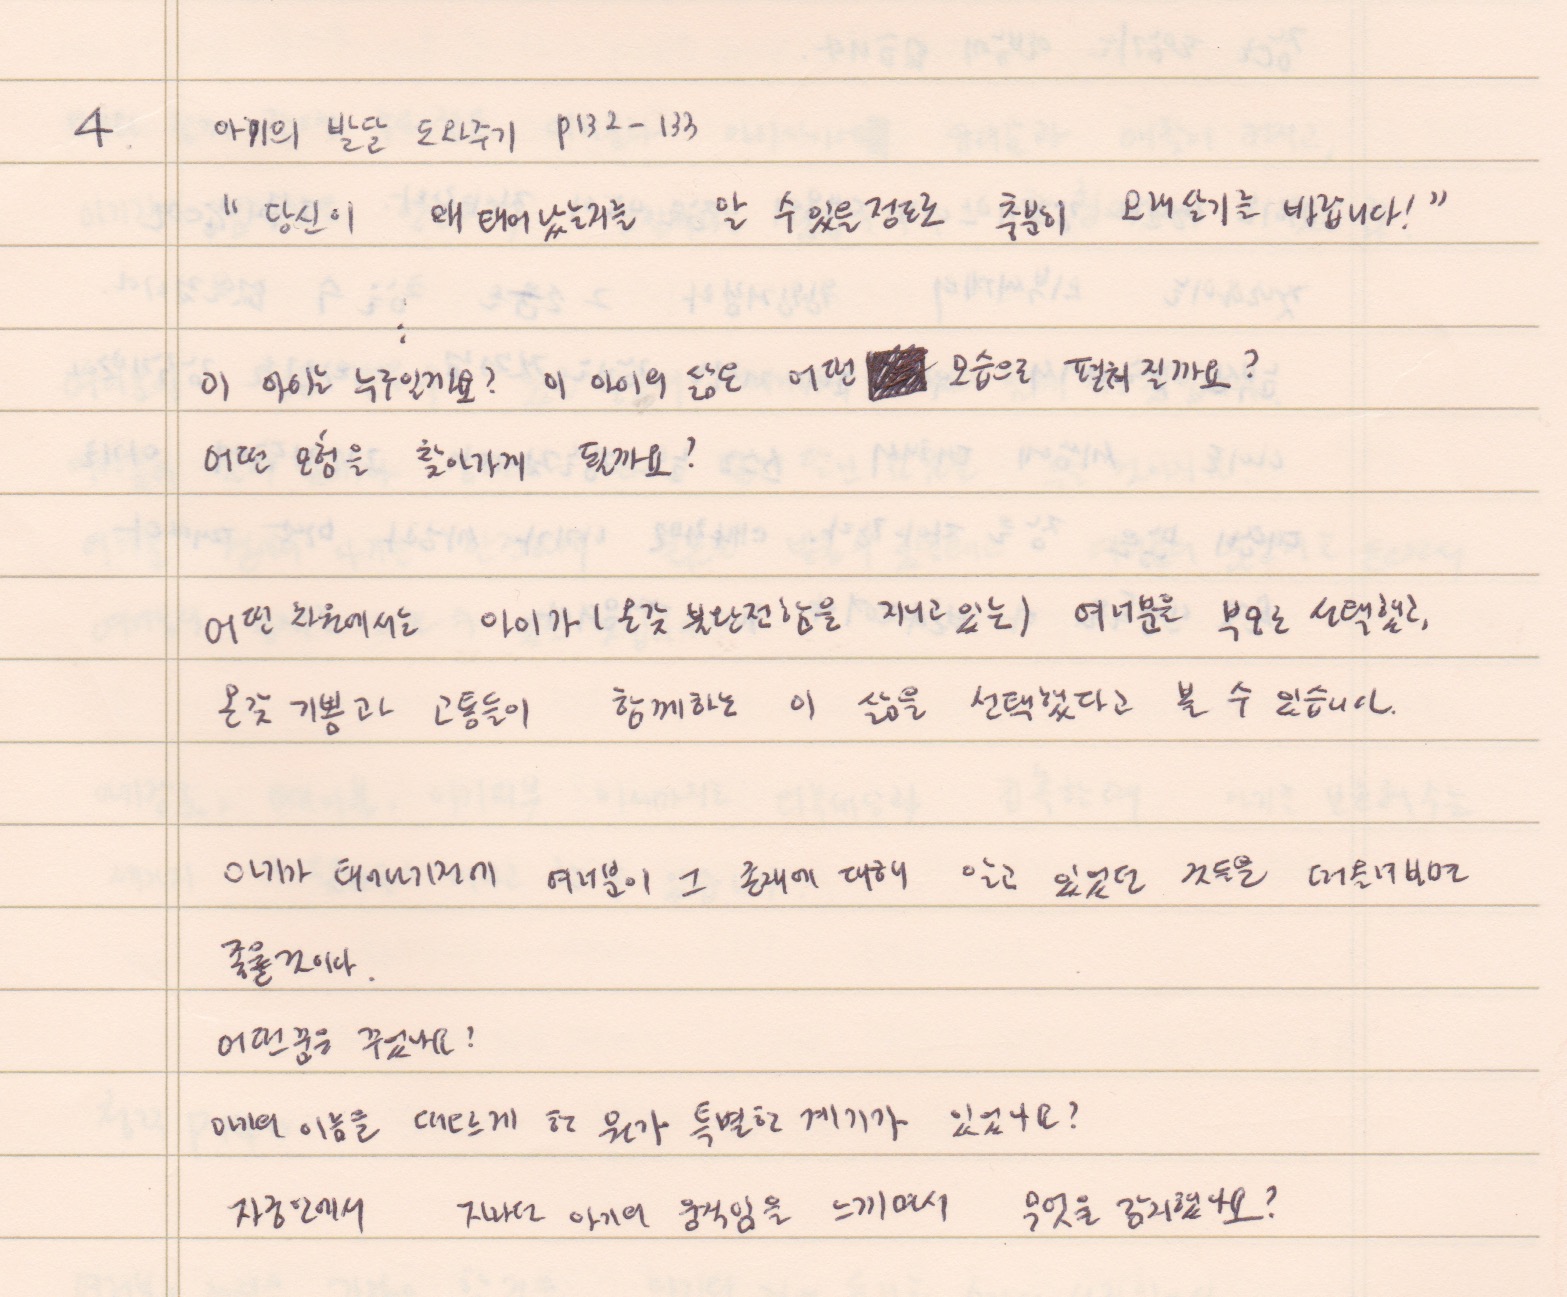 4. 아기의 발달 도와주기 p132-133
"당신이 왜 태어났는지를 알 수 있을 정도로 충분히 오래 살기를 바랍니다!"
:
이 아이는 누구일까요? 이 아이의 삶은 어떤 모습으로 펼쳐질까요?
어떤 모험을 찾아가게 될까요?
어떤 차원에서는 아이가 (온갖 불완전함을 지니고 있는) 여러분을 부모로 선택했고,
온갖 기쁨과 고통들이 함께하는 이 삶을 선택했다고 볼 수 있습니다.
아기가 태어나기전에 여러분이 그 존재에 대해 알고 있었던 것들을 떠올려보면
좋을것이다.
어떤꿈을 꾸었나요?
아기의 이름을 떠오르게 한 뭔가 특별한 계기가 있었나요?
자궁안에서 자라던 아기의 움직임을 느끼면서 무엇을 감지했나요?